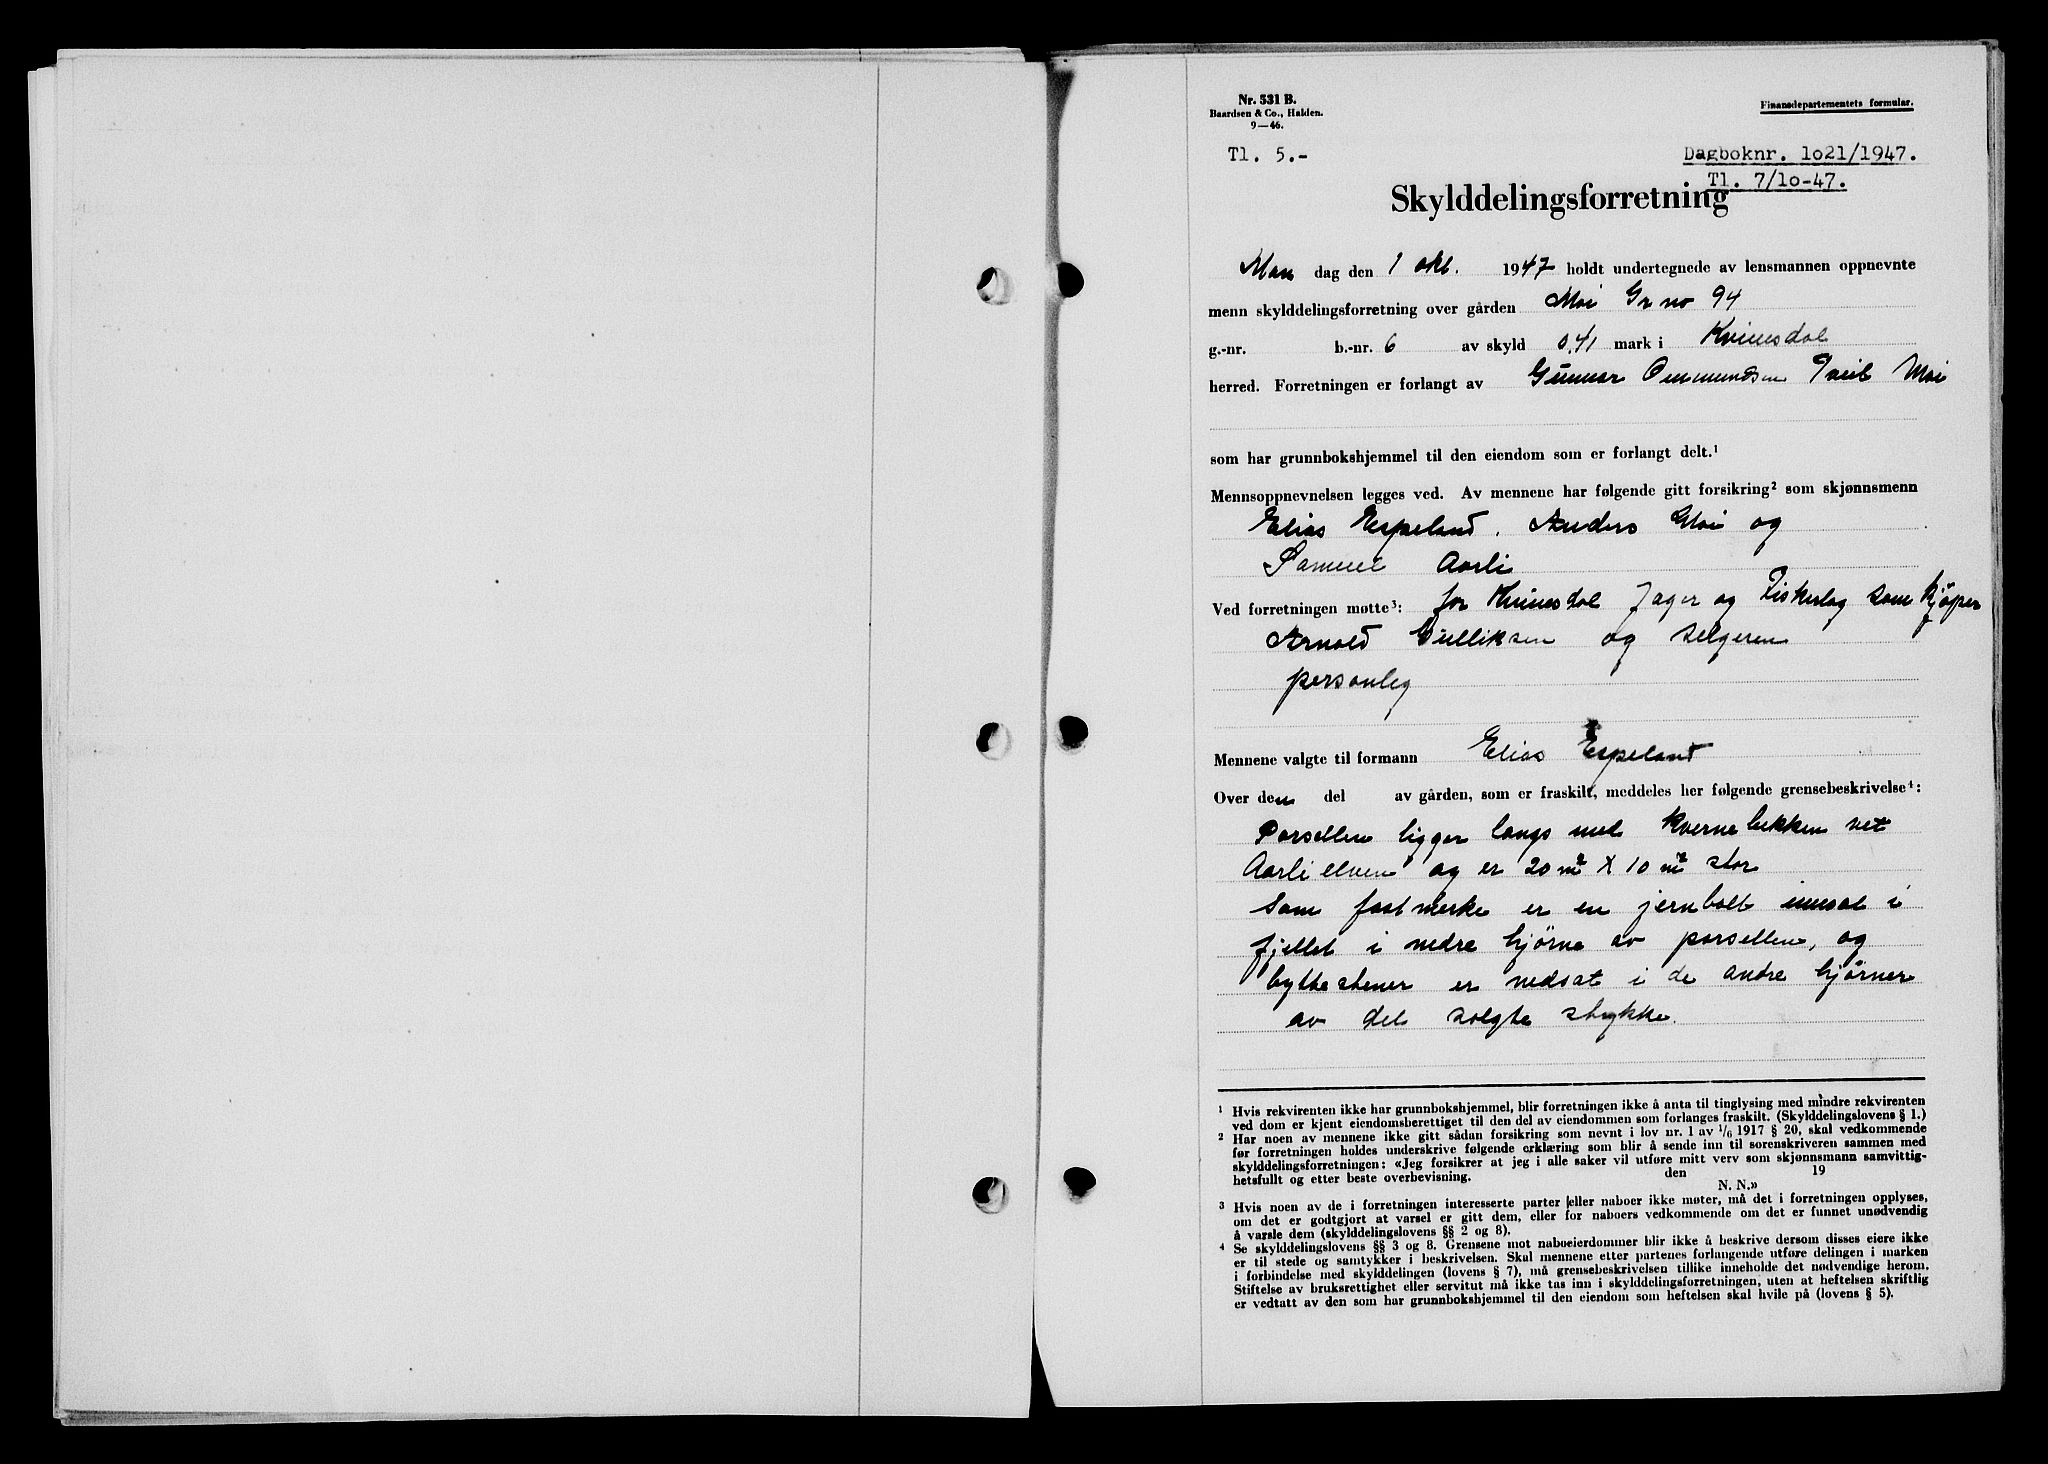 Nr. 531 B.
Baardsen & Co., Halden.
9—46.
Finansdepartementets formular.
Tl. 5.-
Dagboknr. 1o21/1947.
Tl. 7/1o-47.
Skylddelingsforretning
Man dag den 1 okt. 1947 holdt undertegnede av lensmannen oppnevnte
menn skylddelingsforretning over gården Moi Gr no 94
g.-nr. b.-nr. 6 av skyld 0,41 mark i Kvinesdal
herred. Forretningen er forlangt av Gunnar Ommundsen Moi
som har grunnbokshjemmel til den eiendom som er forlangt delt.¹
Mennsoppnevnelsen legges ved. Av mennene har følgende gitt forsikring² som skjønnsmenn
Elias Espeland. Anders Moi og
Samuel Aarli
Ved forretningen møtte³: for Kvinesdal Jager og Fiskerlag som kjøper
Arnold Gulliksen og selgeren
personleg
Mennene valgte til formann Elias Espeland
Over den del av gården, som er fraskilt, meddeles her følgende grensebeskrivelse⁴:
Parsellen ligger langs med kvernebekken vet
Aarli elven og er 20 m² x 10 m² stor
Som fastmerke er en jernbolt innsat i
fjellet i nedre hjørne av parsellen, og
byttestener er nedsat i de andre hjørner
av det solgte stykke.
¹ Hvis rekvirenten ikke har grunnbokshjemmel, blir forretningen ikke å anta til tinglysing med mindre rekvirenten
ved dom er kjent eiendomsberettiget til den del av eiendommen som forlanges fraskilt. (Skylddelingslovens § 1.)
² Har noen av mennene ikke gitt sådan forsikring som nevnt i lov nr. 1 av 1/6 1917 § 20, skal vedkommende
før forretningen holdes underskrive følgende erklæring som blir å sende inn til sorenskriveren sammen med
skylddelingsforretningen: «Jeg forsikrer at jeg i alle saker vil utføre mitt verv som skjønnsmann samvittig-
hetsfullt og etter beste overbevisning. den 19
N. N.»
³ Hvis noen av de i forretningen interesserte parter eller naboer ikke møter, må det i forretningen opplyses,
om det er godtgjort at varsel er gitt dem, eller for naboers vedkommende om det er funnet unødvendig
å varsle dem (skylddelingslovens §§ 2 og 8).
⁴ Se skylddelingslovens §§ 3 og 8. Grensene mot naboeierdommer blir ikke å beskrive dersom disses eiere ikke
er til stede og samtykker i beskrivelsen. Skal mennene etter partenes forlangende utføre delingen i marken
i forbindelse med skylddelingen (lovens § 7), må grensebeskrivelsen tillike inneholde det nødvendige herom.
Stiftelse av bruksrettighet eller servitut må ikke tas inn i skylddelingsforretningen, uten at heftelsen skriftlig
er vedtatt av den som har grunnbokshjemmel til den eiendom som heftelsen skal hvile på (lovens § 5).